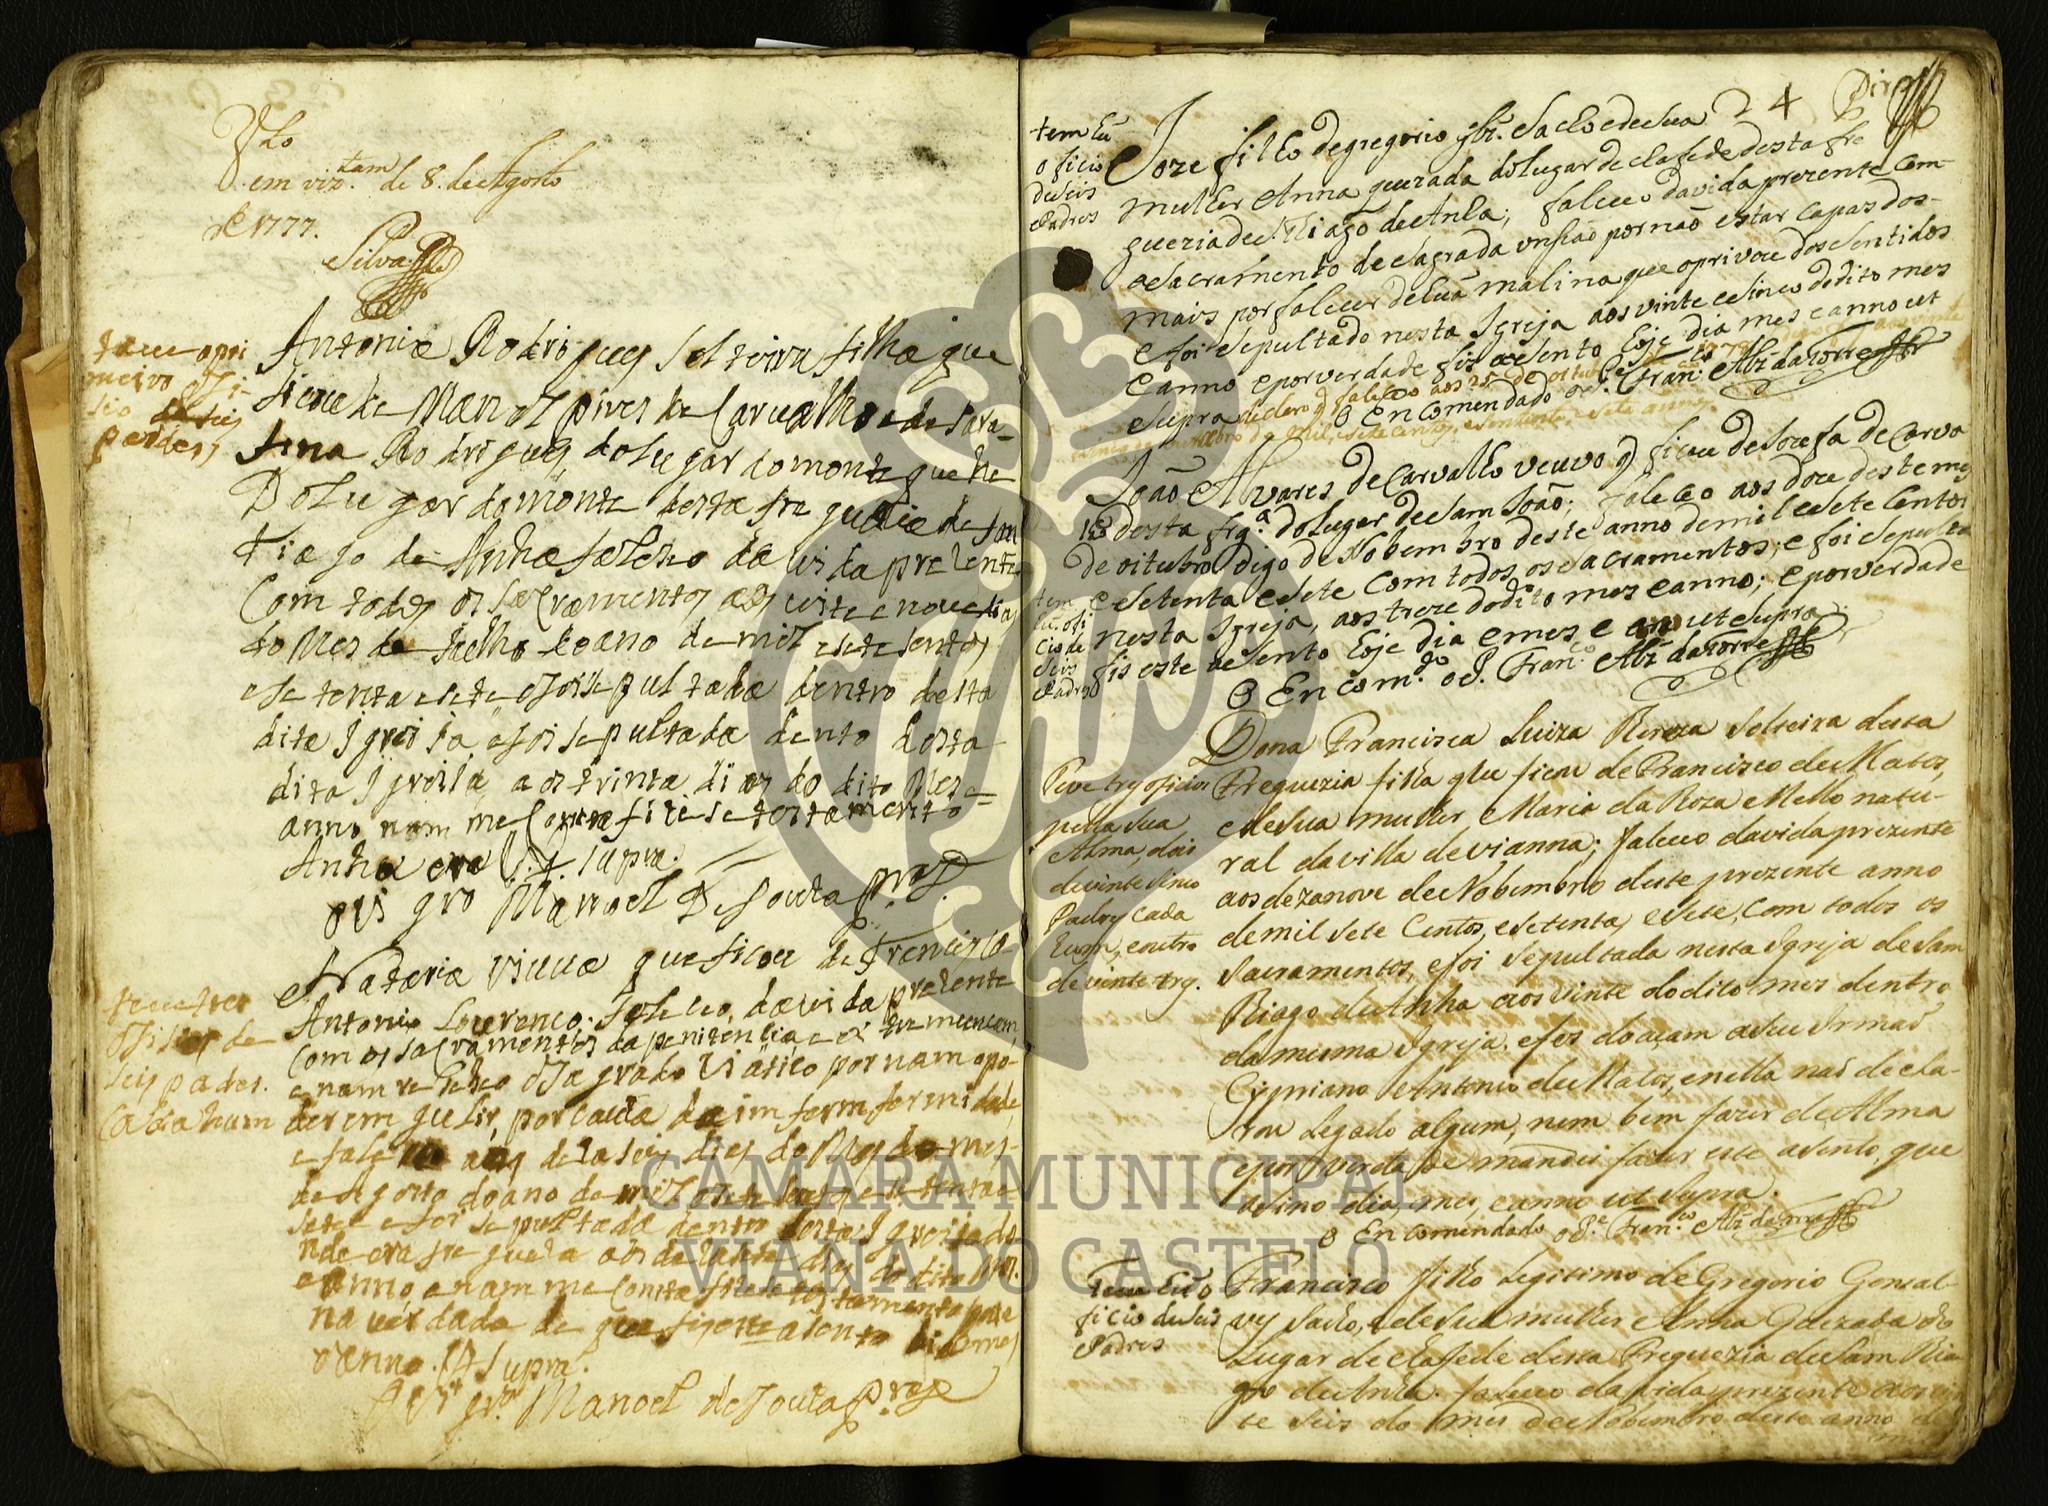 Vto
em viz.tam de 8. de Agosto
de 1777.
Silva
teve o pri
meiro ofi-
sio de seis
padres
Antonia Rodrigues solteira filha que
ficou de Manoel pires de Carvalho e de Cata-
rina Rodrigues do lugar do monte que he
Do lugar do monte desta freguezia de san
Tiago de Anha faleseo da vida prezente
Com todos os sacramentos aos vinte e nove dias
do Mes de Julho do ano de mil e sete sentos
e setenta e sete e foi sepultada dentro desta
dita Igreija e foi sepultada dento desta
dita Igreija aos trinta dias do dito Mes e
anno nam me Consta fizese testamento
Anha era ut supra.
o Vigro Manoel de Souza
teve tres
ofisios de
seis padres.
Cada hum
Nataria Viuva que ficou de Francisco
Antonio Lourenco. faleseo, da vida prezente
Com os sacramentos da penitencia e
e nam resebeo o sagrado Viatico por nam o po-
der em gulir, por cauza da imfermformidade,
e faleseo aos dezaseis dias do Mes
de Agosto do ano de mil e sete sentos e setenta e
sete e foi sepultada dentro desta Igreija do
nde era fregueza aos dezasete dias do dito Mes
e anno e nam me Consta fizese testamento pase
na verdade de que fiz este asento dia mes
e anno ut supra.
o Vigro Manoel de Souza
24
tem hũ
oficio
de seis
Padres
Joze filho de gregorio glz. Saclo e de sua
mulher Anna quezada do lugar de clasede desta fre
guezia de S. Thiago de Anha; faleceo da vida prezente com
o Sacramento de Sagrada unsão por não estar capas dos
mais por falecer de hũa malina que o privou dos sentidos
e foi sepultado nesta Igreja aos vinte e sinco do dito mes
e anno e por verdade fis o asento hoje dia mes e anno ut
supra declaro q faleceo aos 25 de oitubro
O Encomendado o P. Fran.co Alz da Torre
João Alvares de Carvalho veuvo q ficou de Jozefa de Carva
lho desta frg.a do lugar de Sam João; faleceo aos doze deste mes
de oitubro digo de Nobembro deste anno de mil e sete centos
e setenta e sete com todos os sacramentos; e foi sepulta
tem
hũ ofi
cio de
seis
Padres
nesta Igreja, aos treze do dito mes e anno; e por verdade
fis este asento hoje dia e mes e anno ut supra
O Encom.do o P. Fran.co Alz da Torre
Dona Francisca Luiza Roza solteira desta
Freguezia filha que ficou de Francisco de Matos,
e de sua mulher Maria da Roza e Mello natu-
ral da villa de vianna; faleceo da vida prezente
aos dezanove de Nobembro deste prezente anno
de mil sete Centos, e setenta, e sete, com todos os
Sacramentos, e foi sepultada nesta Igreja de Sam
Thiago de Anha aos vinte do dito mes dentro
da mesma Igreja. e fes doaçam a seu Irmaõ
Cypriano Antonio de Matos, e nella naõ decla-
rou Legado algum, nem bem fazer de Alma
e por verdade mandei fazer este asento, que
asino dia, mes, e anno ut supra.
o Encomendado o P.e Fran.co Alz da Torre
Teve tres oficios
pella sua
Alma, dois
de vinte sinco
Padres cada
hum, e outro
de vinte tres.
Tem hũ o
ficio de seis
Padres
Francisco filho Legitimo de Gregorio Gonsal-
ves Saclo, e de sua mulher Anna Quezada do
Lugar de Clasede desta Freguezia de Sam Thia
go de Anha. faleceo da vida prezente aos vin
te seis do mes de Nobembro deste anno de
CÂMARA MUNICIPAL
VIANA DO CASTELO